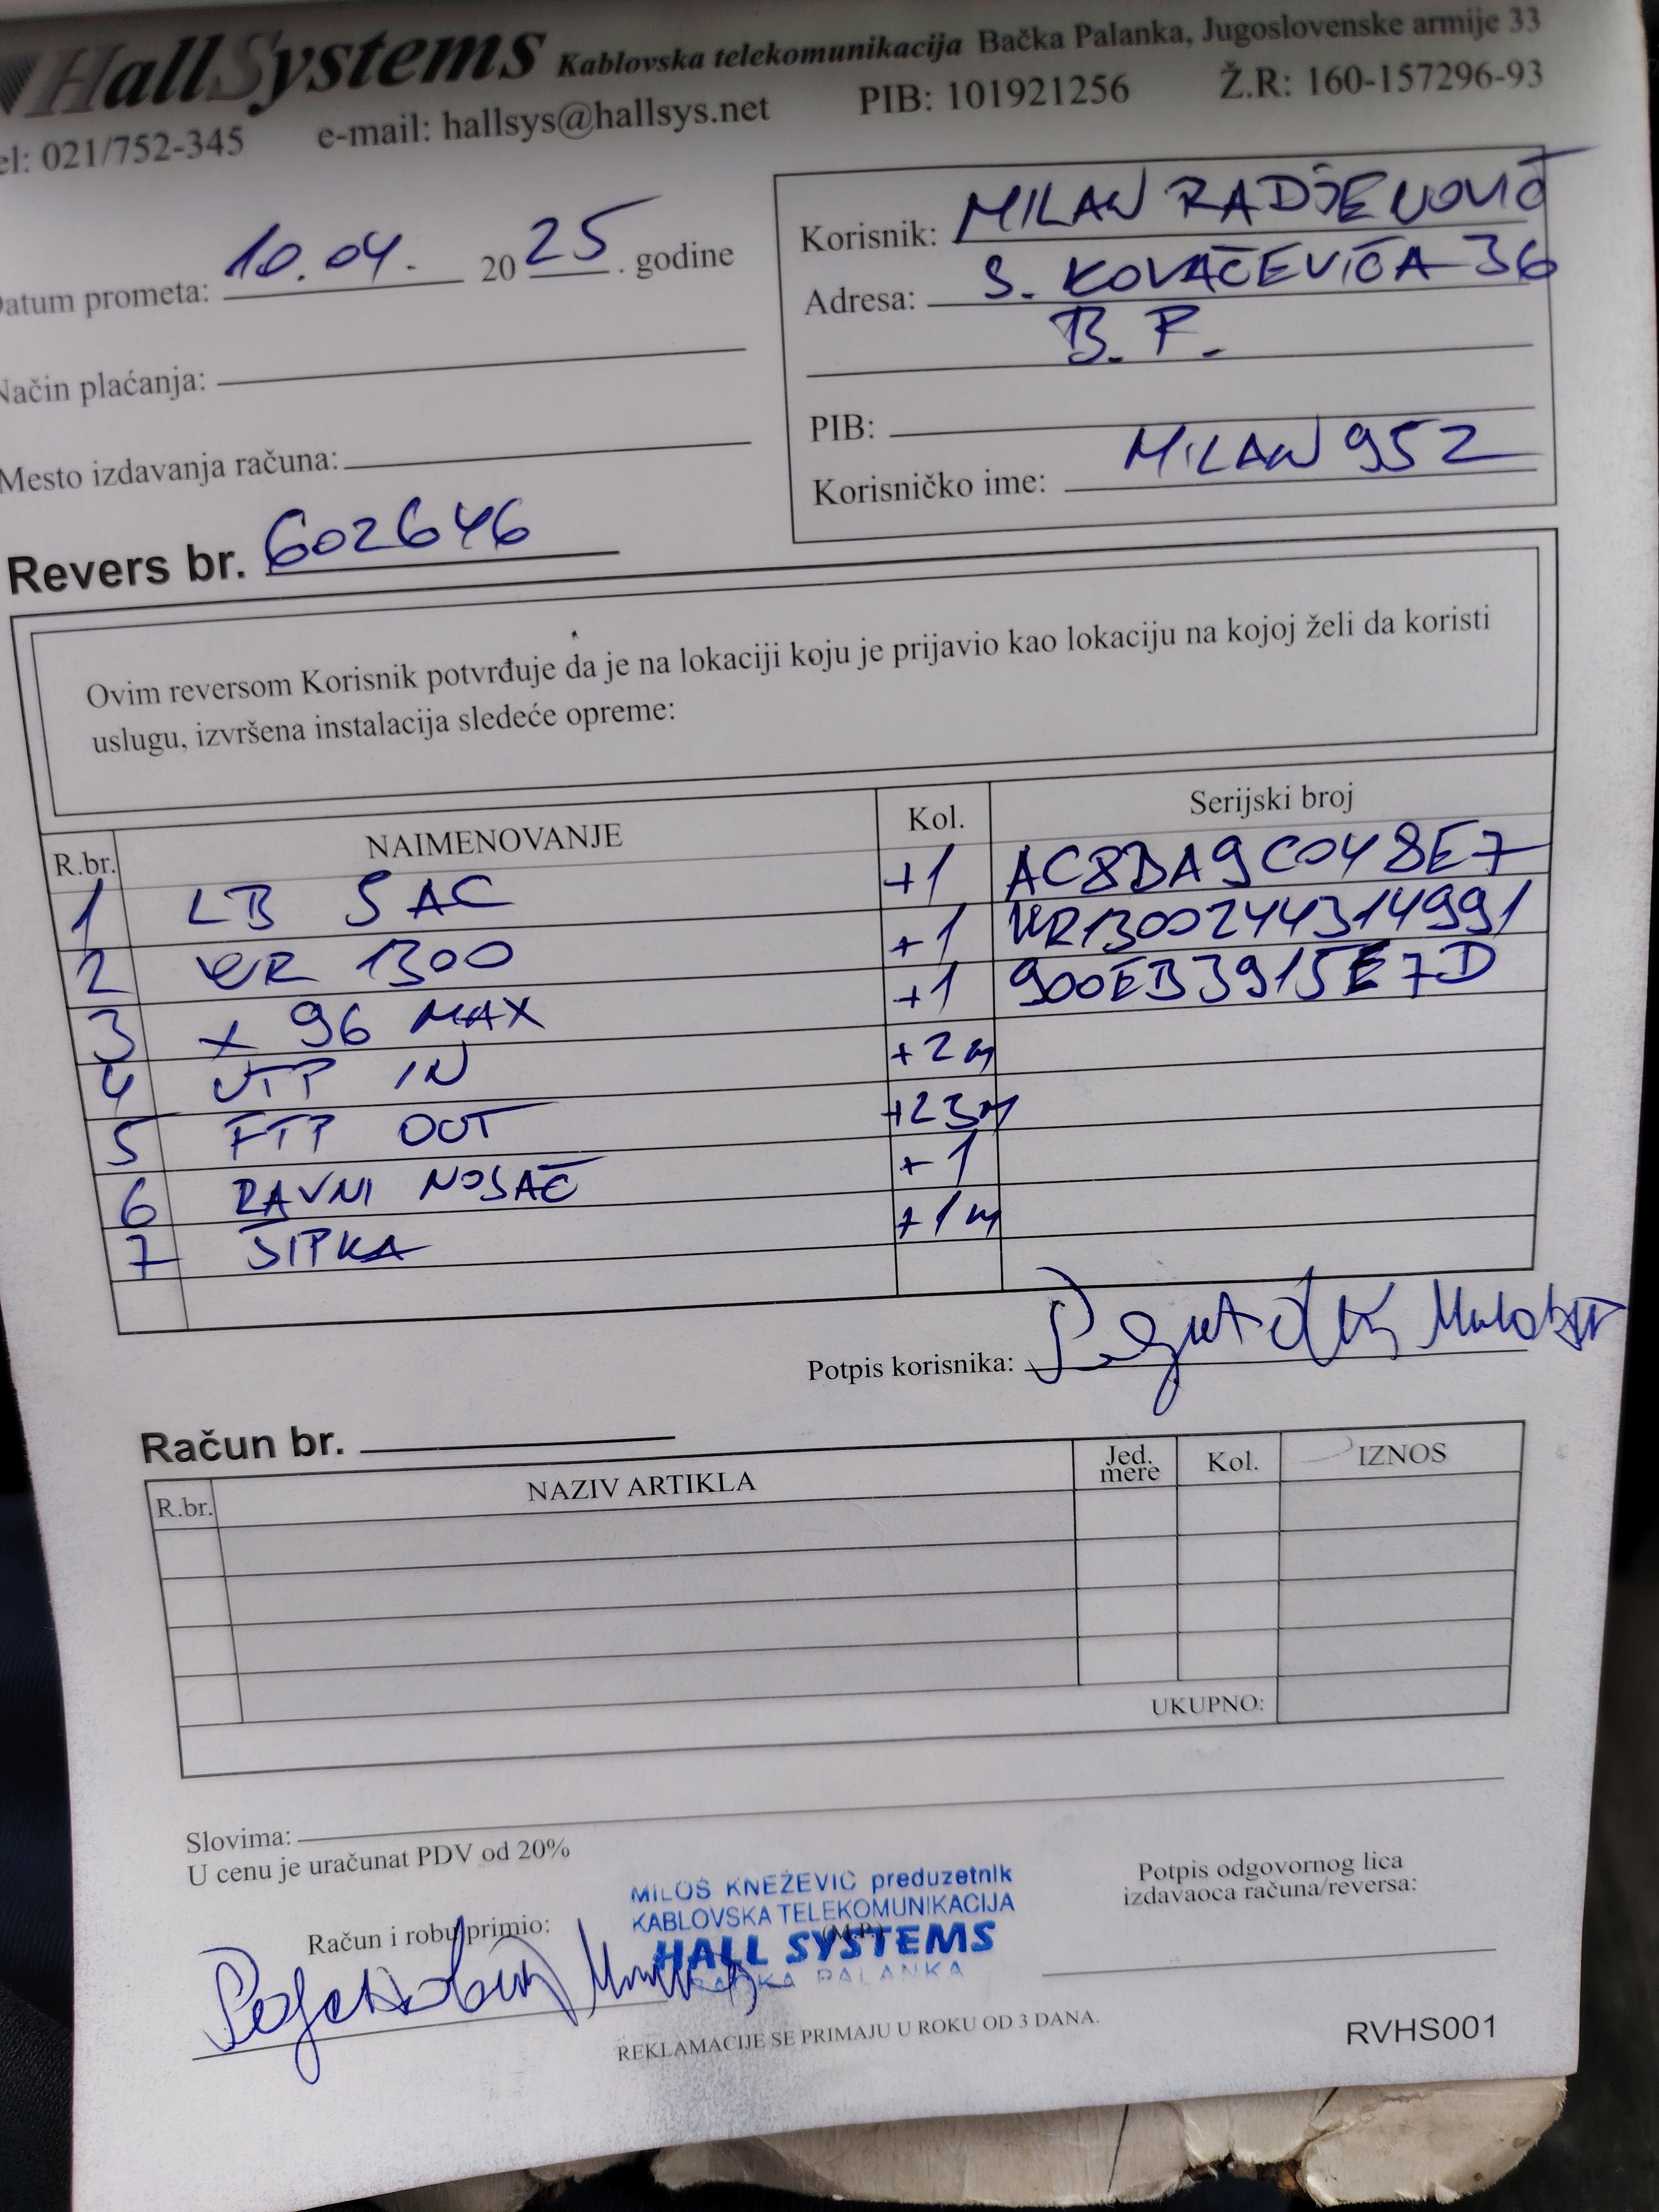 HallSystems Kablovska telekomunikacija Bačka Palanka, Jugoslovenske armije 33
el: 021/752-345 e-mail: hallsys@hallsys.net PIB: 101921256 Ž.R: 160-157296-93
Datum prometa: 10.04. 2025. godine
Način plaćanja:
Mesto izdavanja računa:
Korisnik: MILAN RADJENOVIĆ
Adresa: S. KOVAČEVIĆA 36
B. P.
PIB:
Korisničko ime: MILAN952
Revers br. 602646
Ovim reversom Korisnik potvrđuje da je na lokaciji koju je prijavio kao lokaciju na kojoj želi da koristi
uslugu, izvršena instalacija sledeće opreme:
R.br. NAIMENOVANJE Kol. Serijski broj
1 LB 5 AC +1 AC8BA9C048E7
2 WR 1300 +1 WR1300244314991
3 X 96 MAX +1 900EB3915E7D
4 UTP IN +2m
5 FTP OUT +23m
6 RAVNI NOSAČ +1
7 ŠIPKA +1m
Potpis korisnika:
Račun br.
R.br. NAZIV ARTIKLA Jed. mere Kol. IZNOS
UKUPNO:
Slovima:
U cenu je uračunat PDV od 20%
Račun i robu primio:
MILOŠ KNEŽEVIĆ preduzetnik
KABLOVSKA TELEKOMUNIKACIJA
(M.P.)
HALL SYSTEMS
BAČKA PALANKA
Potpis odgovornog lica
izdavaoca računa/reversa:
REKLAMACIJE SE PRIMAJU U ROKU OD 3 DANA.
RVHS001